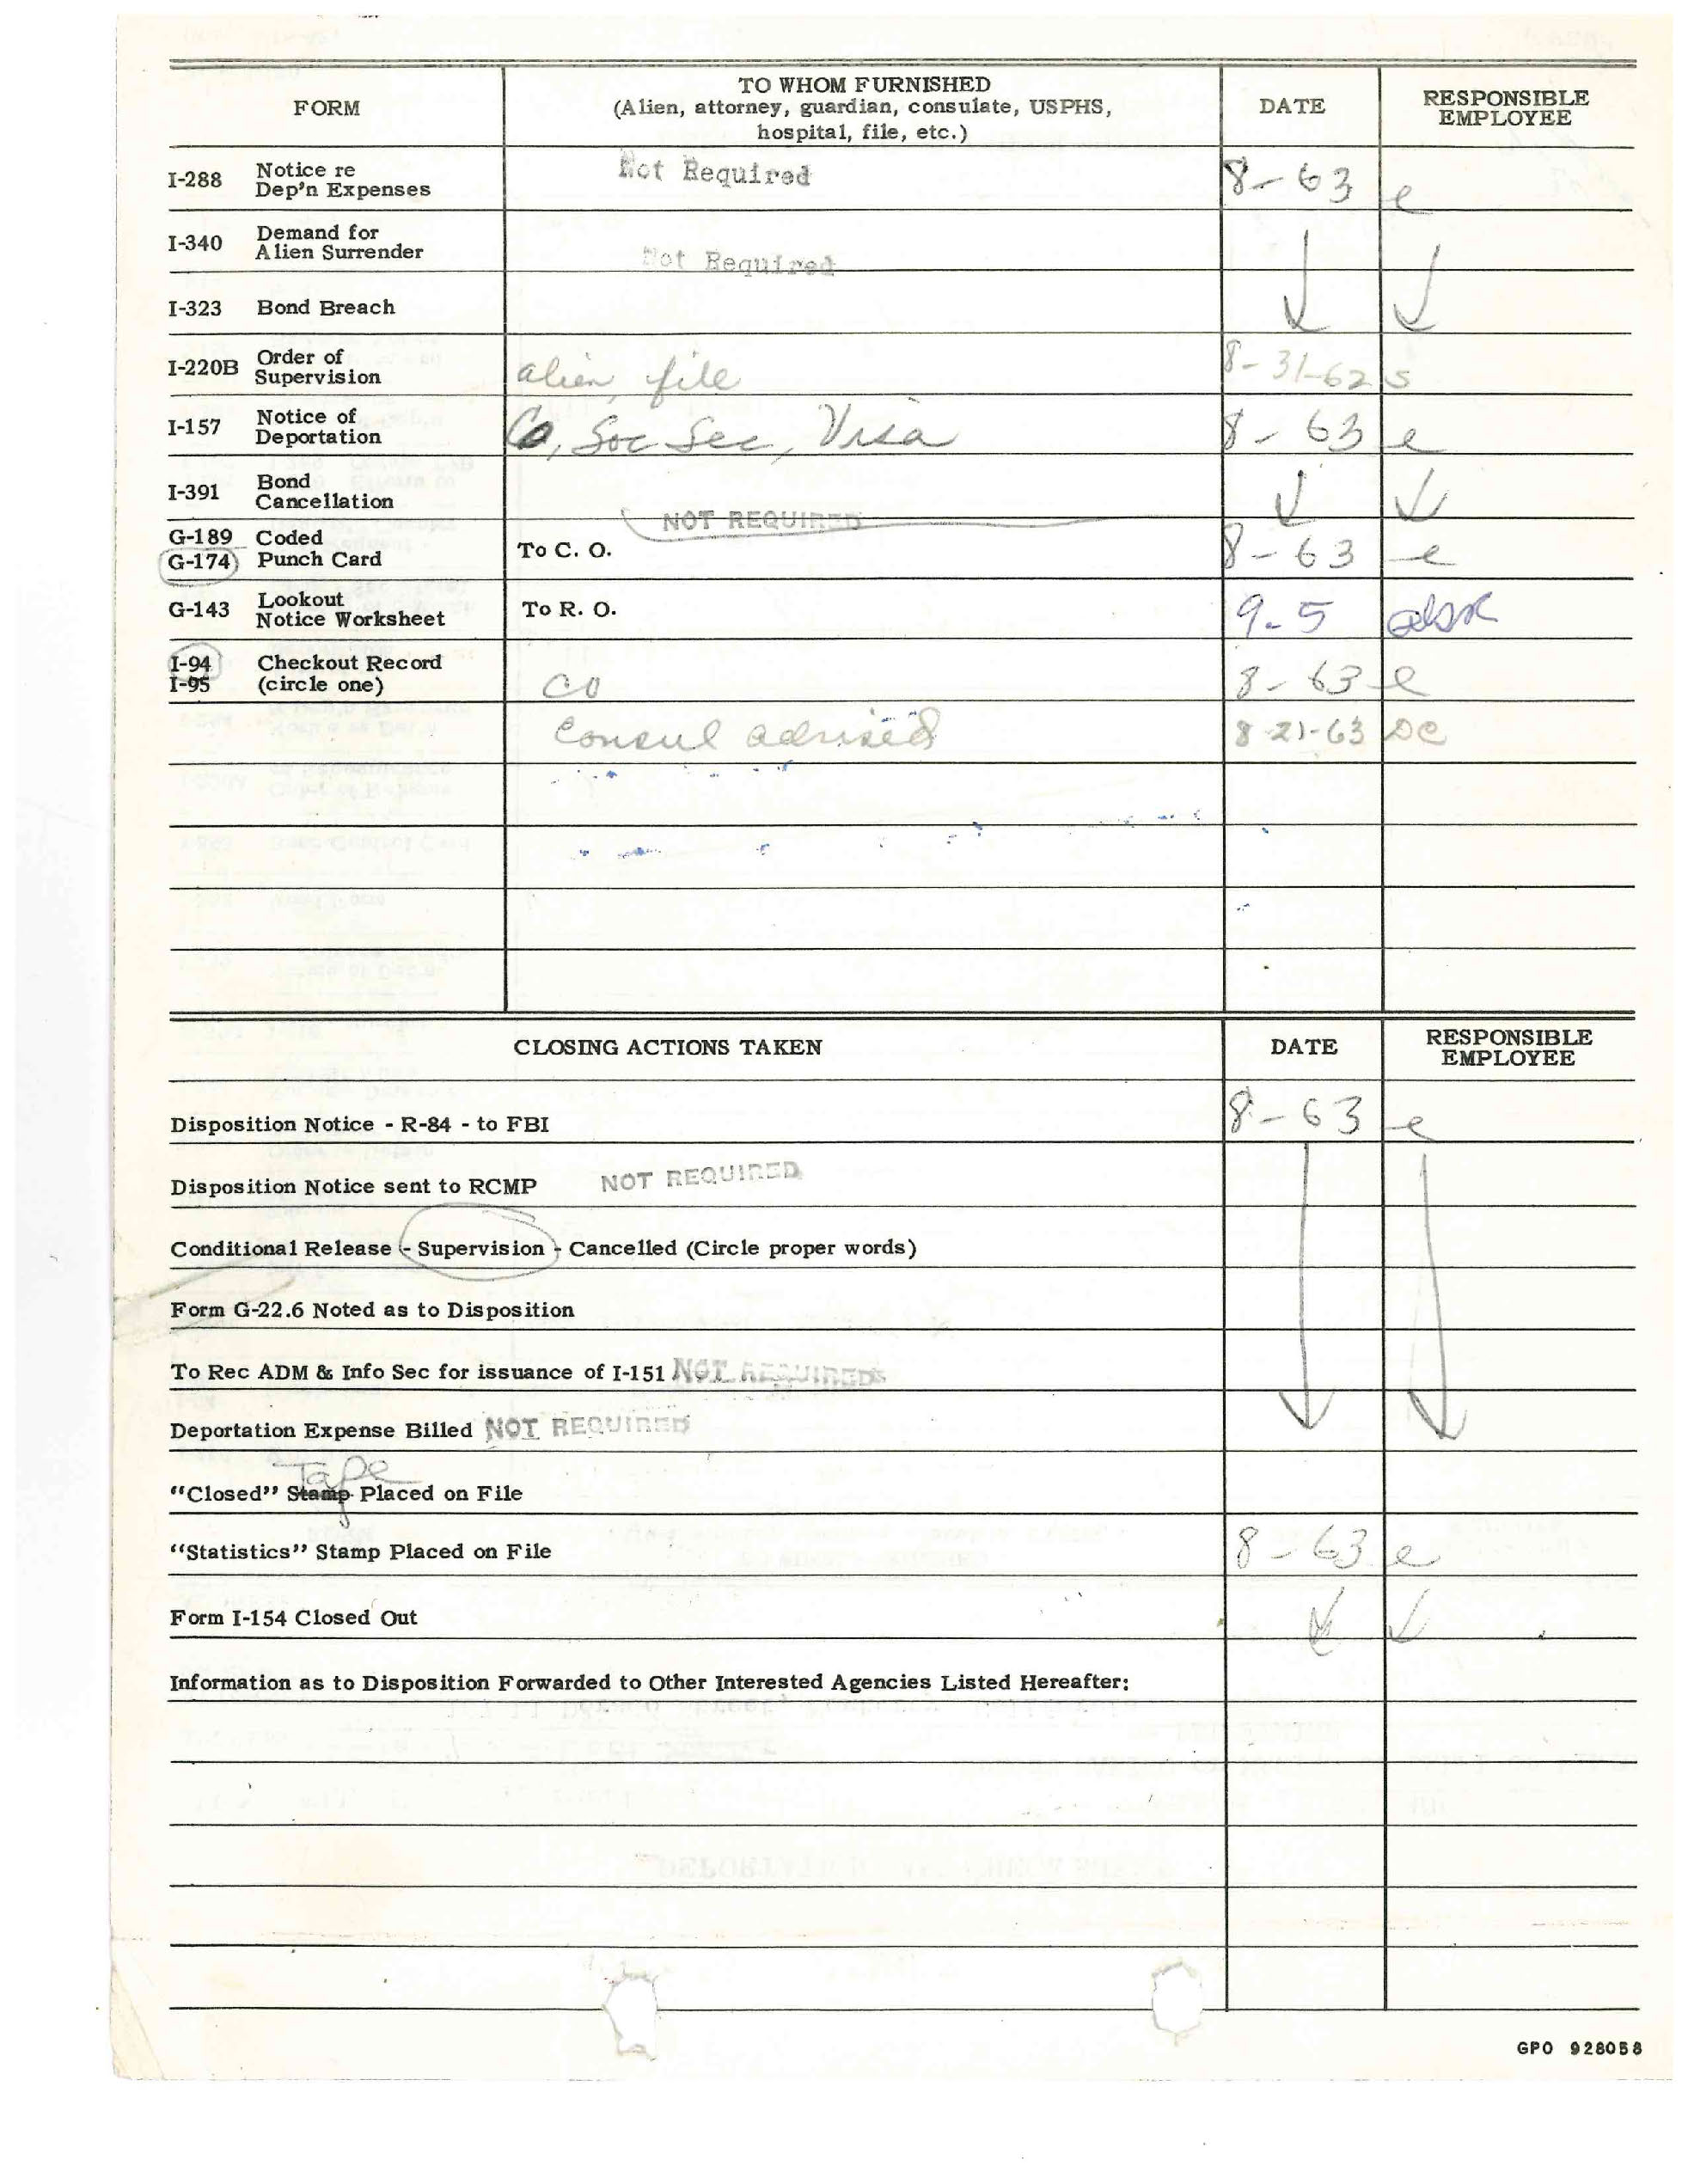 FORM
TO WHOM FURNISHED
(Alien, attorney, guardian, consulate, USPHS,
hospital, file, etc.)
DATE
RESPONSIBLE
EMPLOYEE
I-288 Notice re
Dep'n Expenses
Not Required
8-63 e
I-340 Demand for
Alien Surrender
Not Required
I-323 Bond Breach
I-220B Order of
Supervision
alien, file
8-31-62 S
I-157 Notice of
Deportation
Co, Soc Sec, Visa
8-63 e
I-391 Bond
Cancellation
NOT REQUIRED
G-189 Coded
G-174 Punch Card
To C. O.
8-63 e
G-143 Lookout
Notice Worksheet
To R. O.
9-5
I-94 Checkout Record
I-95 (circle one)
CO
8-63 e
Consul advised
8-21-63 DC
CLOSING ACTIONS TAKEN
DATE
RESPONSIBLE
EMPLOYEE
Disposition Notice - R-84 - to FBI
8-63 e
Disposition Notice sent to RCMP NOT REQUIRED
Conditional Release - Supervision - Cancelled (Circle proper words)
Form G-22.6 Noted as to Disposition
To Rec ADM & Info Sec for issuance of I-151 NOT REQUIRED
Deportation Expense Billed NOT REQUIRED
Tape
"Closed" Stamp Placed on File
"Statistics" Stamp Placed on File
8-63 e
Form I-154 Closed Out
Information as to Disposition Forwarded to Other Interested Agencies Listed Hereafter:
GPO 928058